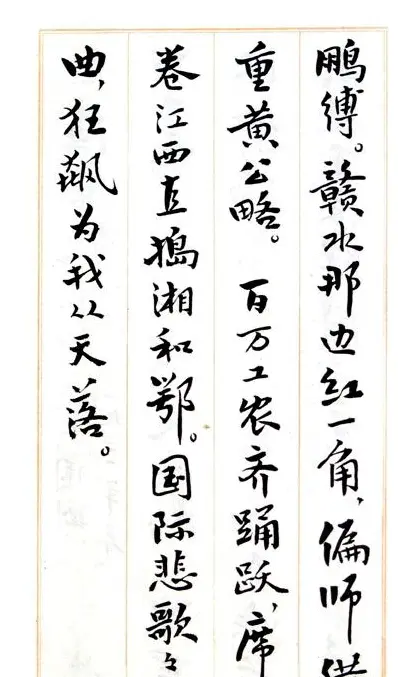 鹏缚。赣水那边红一角,偏师
重黄公略。 百万工农齐踊跃,席
卷江西直搗湘和鄂。国际悲歌々
曲,狂飙为我从天落。